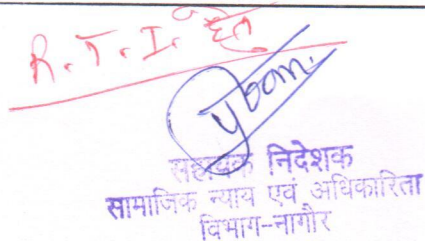 R.T.I. हेतु
सहायक निदेशक
सामाजिक न्याय एवं अधिकारिता
विभाग-नागौर